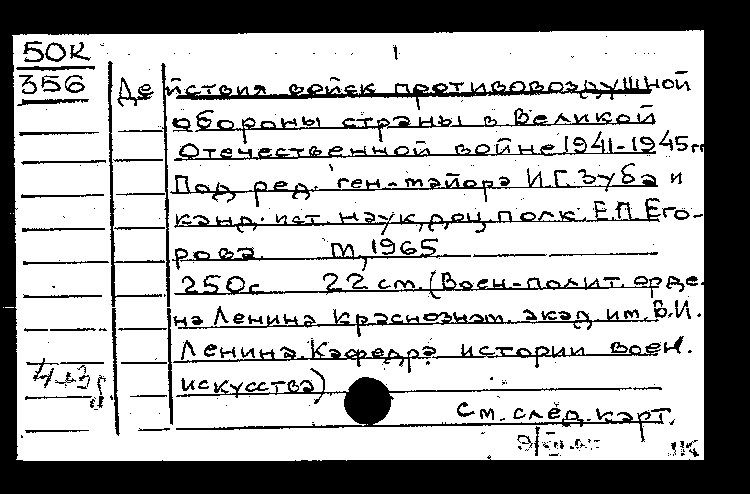 50К 1
356 Действия войск противовоздушной
обороны страны в Великой
Отечественной войне 1941-1945гг
Под ред. ген-майора И.Г. Зуба и
канд. ист. наук, доц. полк. Е.П. Его-
рова. М, 1965
250с 22 см. (Воен-полит. орде-
на Ленина Краснознам. акад. им. В.И.
Ленина. Кафедра истории воен.
искусства)
См. след. карт.